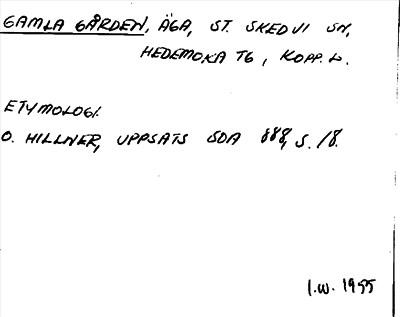 GAMLA GÅRDEN, ÄGA, ST. SKEDVI SN,
HEDEMORA TG, KOPP. L.
ETYMOLOGI.
O. HILLNER, UPPSATS SOA 888, S. 18.
I.W. 1955